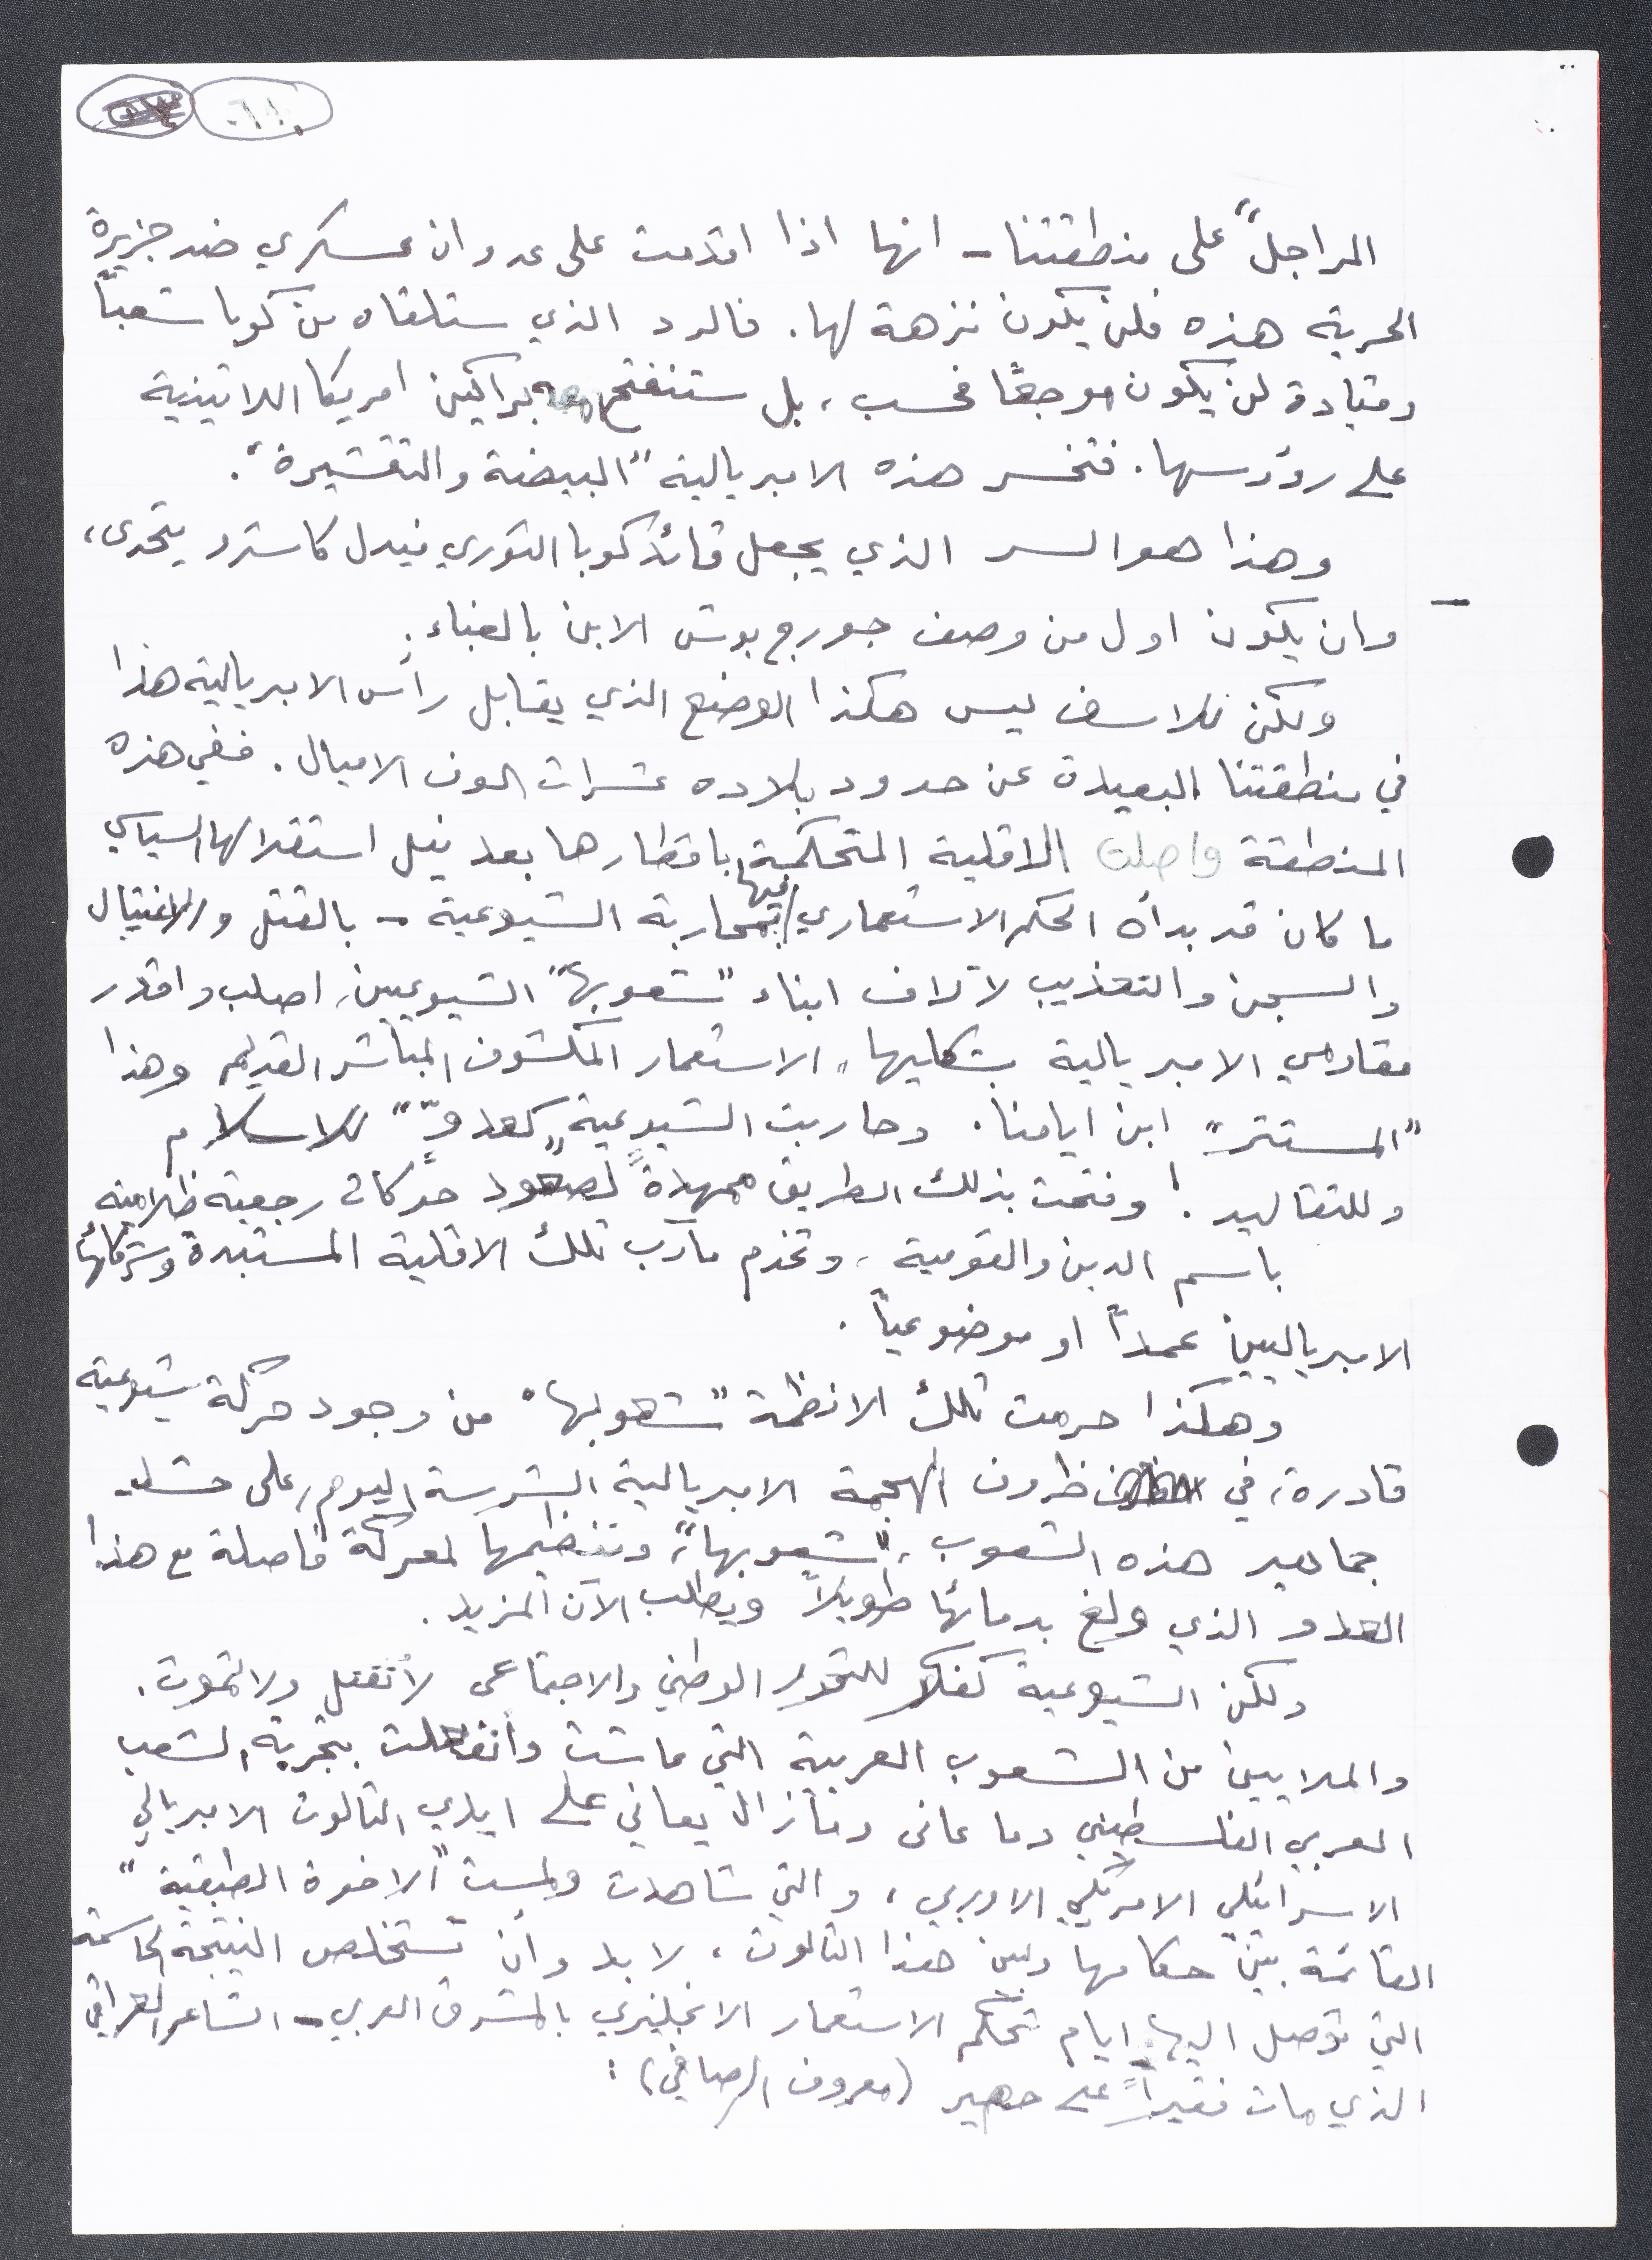 .٦١٠
المراجل" على منطقتنا - انها اذا اقدمت على عدوان عسكري ضد جزيرة
الحرية هذه فلن يكون نزهة لها. فالرد الذي ستلقاه من كوبا شعباً
وقيادة لن يكون موجعًا فحسب، بل ستنفتح معه براكين امريكا اللاتينية
على رؤوسها. فتخسر هذه الامبريالية "البيضة والتقشيرة".
وهذا هو السر الذي يجعل قائد كوبا الثوري فيدل كاسترو يتحدى،
- وان يكون اول من وصف جورج بوش الابن بالغباء.
ولكن للاسف ليس هكذا الوضع الذي يقابل رأس الامبريالية هذا
في منطقتنا البعيدة عن حدود بلاده عشرات الوف الاميال. ففي هذه
المنطقة واصلت الاقلية المتحكمة باقطارها بعد نيل استقلالها السياسي
ما كان قد بدأه الحكم الاستعماري فيها بمحاربة الشيوعية - بالقتل والاغتيال
والسجن والتعذيب لآلاف ابناء "شعوبها" الشيوعيين، اصلب واقدر
مقاومي الامبريالية بشكليها، الاستعمار المكشوف المباشر القديم وهذا
"المستتر" ابن ايامنا. وحاربت الشيوعية "كعدوّ" للاسلام
وللتقاليد! وفتحت بذلك الطريق ممهدةً لصعود حركات رجعية ظلامية
باسم الدين والقومية، وتخدم مآرب تلك الاقلية المستبدة وشركائها
الامبرياليين عمداً او موضوعياً.
وهكذا حرمت تلك الانظمة "شعوبها" من وجود حركة شيوعية
قادرة، في ظروف الهجمة الامبريالية الشرسة اليوم، على حشد
جماهير هذه الشعوب، "شعوبها"، وتنظيمها لمعركة فاصلة مع هذا
العدو الذي ولغ بدمائها طويلاً ويطلب الآن المزيد.
ولكن الشيوعية كفكر للتحرر الوطني والاجتماعي لا تقتل ولا تموت.
والملايين من الشعوب العربية التي عاشت وانفعلت بتجربة الشعب
العربي الفلسطيني وما عانى وما زال يعاني على ايدي الثالوث الامبريالي
الاسرائيلي الامريكي الاوربي، والتي شاهدت ولمست "الاخوة الطبقية"
القائمة بين حكامها وبين هذا الثالوث، لا بد وأن تستخلص النتيجة الحاسمة
التي توصل اليها ايام تحكم الاستعمار الانجليزي بالمشرق العربي - الشاعر العراقي
الذي مات فقيراً على حصير (معروف الرصافي):